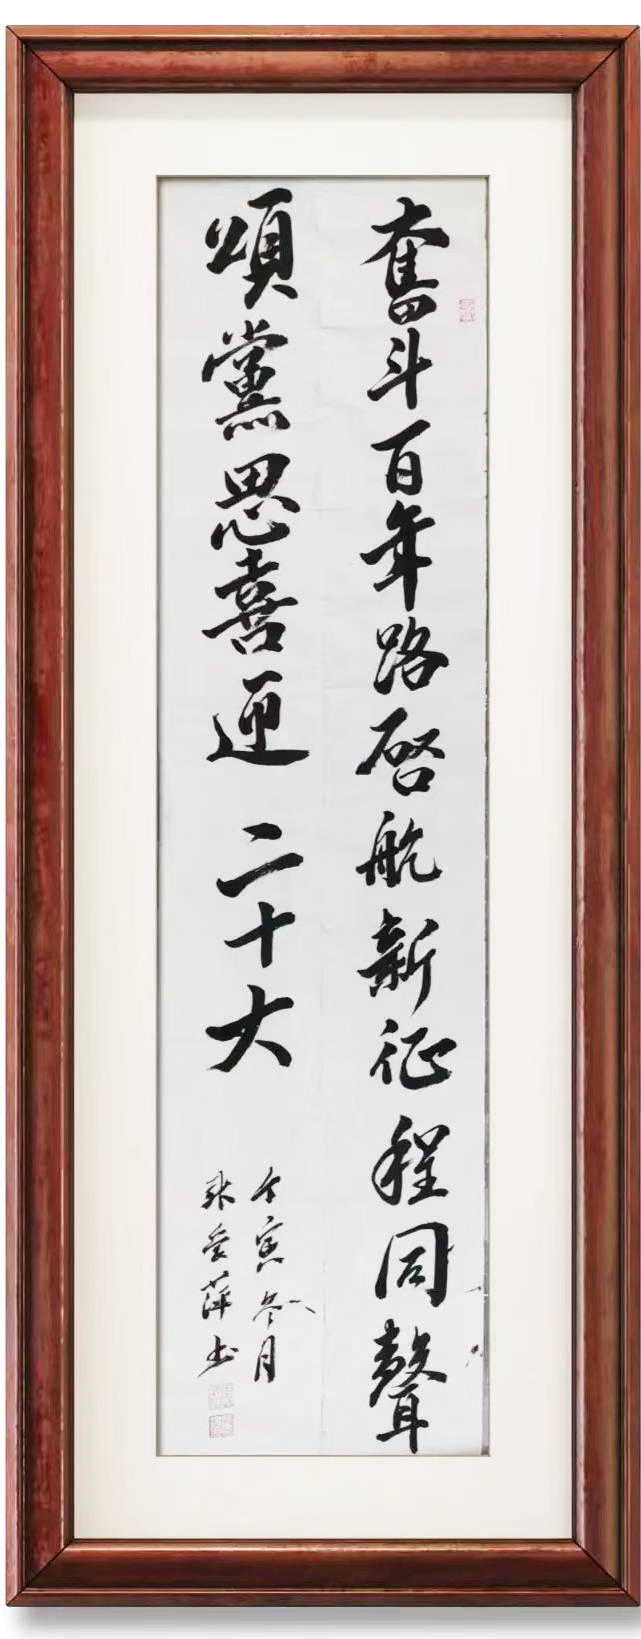 奮斗百年路啓航新征程同聲
頌黨恩喜迎二十大
壬寅冬月
張愛萍书